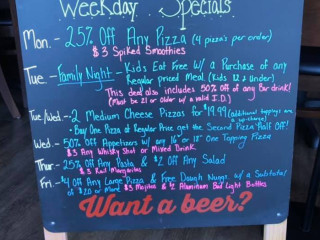 Weekday Specials
Mon. - 25% Off Any Pizza (4 pizza's per order)
$3 Spiked Smoothies
Tue - Family Night - Kids Eat Free w/ a Purchase of any
Regular priced Meal. (Kids 12 & Under)
This deal also includes 50% Off of any Bar drink!
(Must be 21 or Older w/ a valid I.D.)
Tue/Wed. - 2 Medium Cheese Pizzas for $19.99 (additional toppings are a up-charge)
- Buy One Pizza at Regular Price get the Second Pizza Half Off!
Wed - 50% Off Appetizers w/ any 16" or 18" One Topping Pizza
$3 Any Whiskey Shot or Mixed Drink
Thur - 25% Off Any Pasta & $2 Off Any Salad
$3 Margaritas
Fri - $4 Off Any Large Pizza & Free Dough Nugs. w/ a Subtotal
of $20 or More $3 Mojitos & $2 Aluminum Bud Light Bottles
Want a beer?